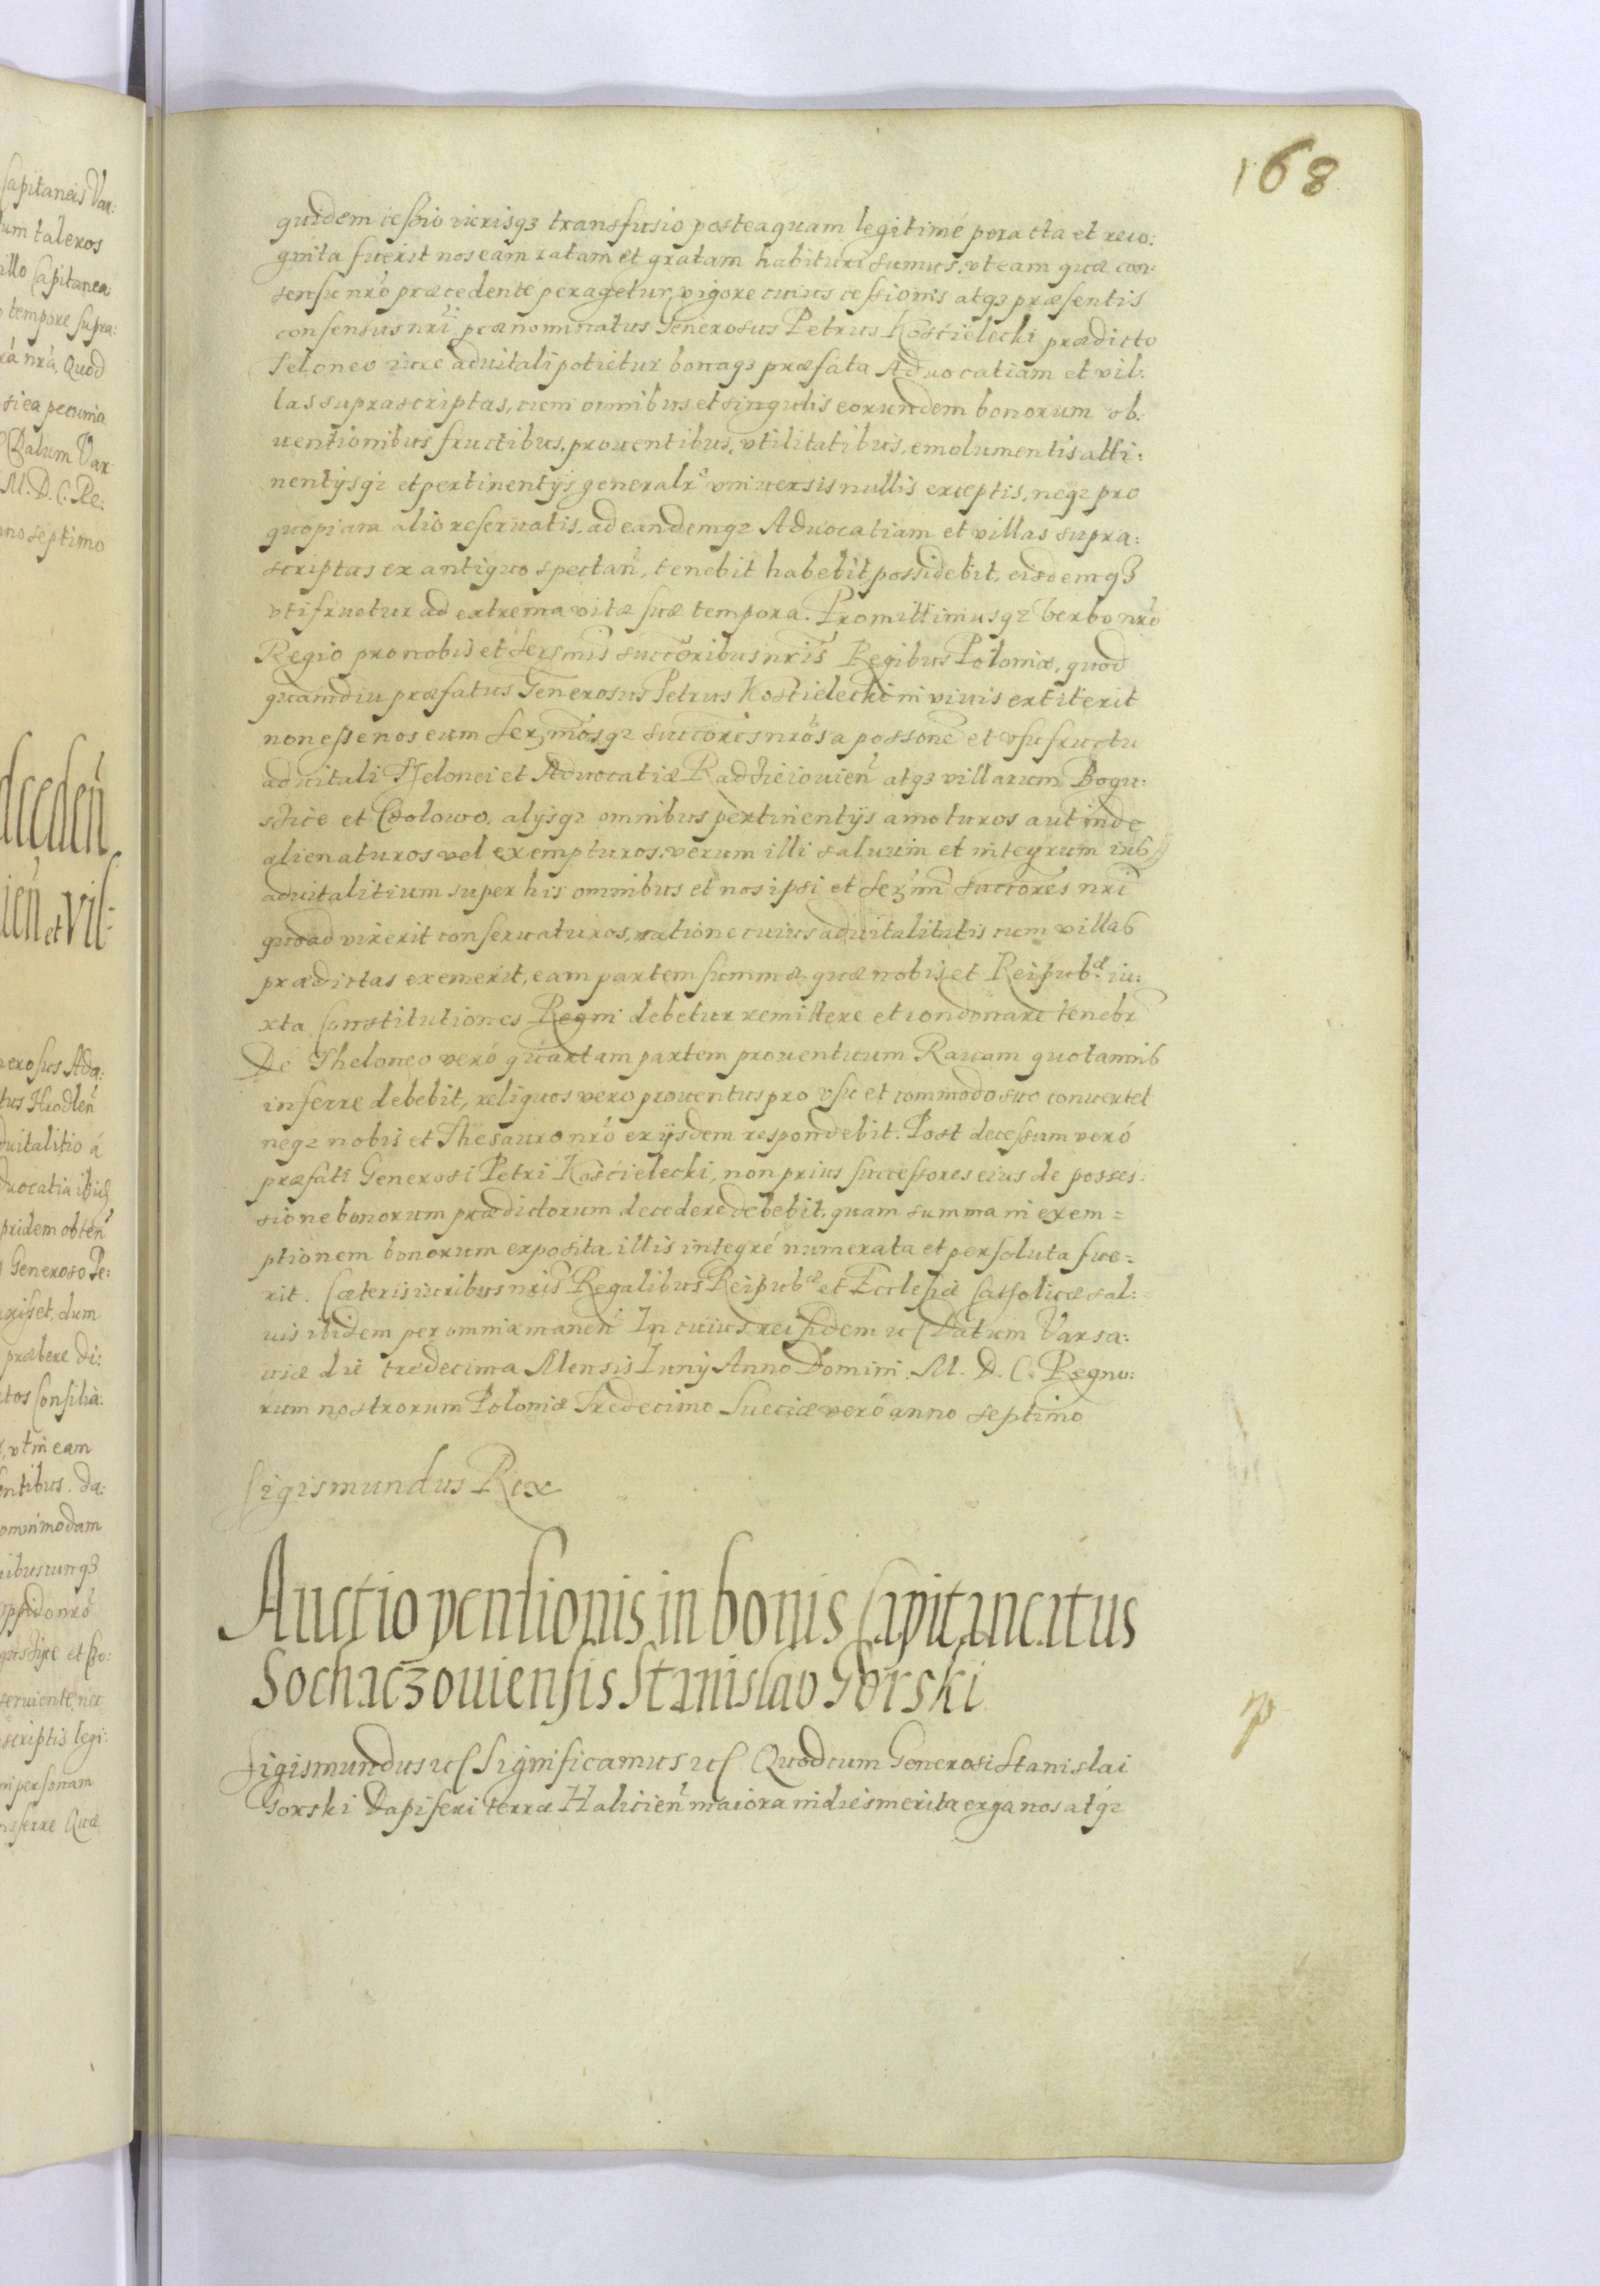 168
quidem cessio iurisq3 transfusio posteaquam legitimé peracta et reco:
gnita fuerit nos eam ratam et gratam habituri sumus, vt eam quæ con:
sensu nr̃o præcedente peragetur, vigore cuius cessionis atq3 præsentis
consensus nr̃i prænominatus Generosus Petrus Kościelecki prædicto
Teloneo iure aduitali potietur bonaq3 præfata Aduocatiam et vil:
las suprascriptas, cum omnibus et singulis eorundem bonorum ob:
uentionibus fructibus, prouentibus, vtilitatibus, emolumentis atti:
nentijsq3 et pertinentijs generalr̃ vniuersis nullis exceptis, neq3 pro
quopiam alio reseruatis, ad eandemq3 Aduocatiam et villas supra:
scriptas ex antiquo spectan̄, tenebit habebit possidebit, eisdemq3
vtifruetur ad extrema vitæ suæ tempora. Promittimusq3 verbo nr̃o
Regio pro nobis et Ser3mis succõribus nr̃is Regibus Poloniæ, quod
quamdiu præfatus Generosus Petrus Kościelecki in viuis extiterit
non esse nos eum Ser3mosq3 succõres nr̃os a possone et vsufructu
aduitali Thelonei et Aduocatiæ Radzieiouien̄ atq3 villarum Bogu:
szice et Czolowo, alijsq3 omnibus pertinentijs amoturos aut inde
alienaturos vel exempturos, verum illi saluum et integrum ius
aduitalitium super his omnibus et nos ipsi et Ser3mi succõres nr̃i
quoad vixerit conseruaturos, ratione cuius aduitalitatis cum villas
prædictas exemerit, eam partem summæ quæ nobis et Reipubæ iu:
xta Constitutiones Regni debetur remittere et condonare tenebr̃
De Theloneo veró quartam partem prouentuum Rauam quotannis
inferre debebit, reliquos vero prouentus pro vsu et commodo suo conuertet
neq3 nobis et Thesauro nr̃o ex ijsdem respondebit. Post decessum veró
præfati Generosi Petri Kościelecki, non prius successores eius de posses:
sione bonorum prædictorum decedere debebit, quam summa in exem=
ptionem bonorum exposita illis integré numerata et persoluta fue=
rit. Cæteris iuribus nr̃is Regalibus Reipubæ et Ecclesiæ Catholicæ sal:
uis ibidem per omnia manen̄ In cuius rei fidem ꝛc Datum Varsa:
uiæ die tredecima Mensis Iunij Anno Domini M. D. C. Regno:
rum nostrorum Poloniæ Tredecimo Sueciæ veró anno septimo
Sigismundus Rex
Auctio pensionis in bonis Capitaneatus
Sochaczouiensis Stanislao Gorski
Sigismundus ꝛc Significamus ꝛc Quod cum Generosi Stanislai
Gorski Dapiferi terræ Halicien̄ maiora in dies merita erga nos atq3